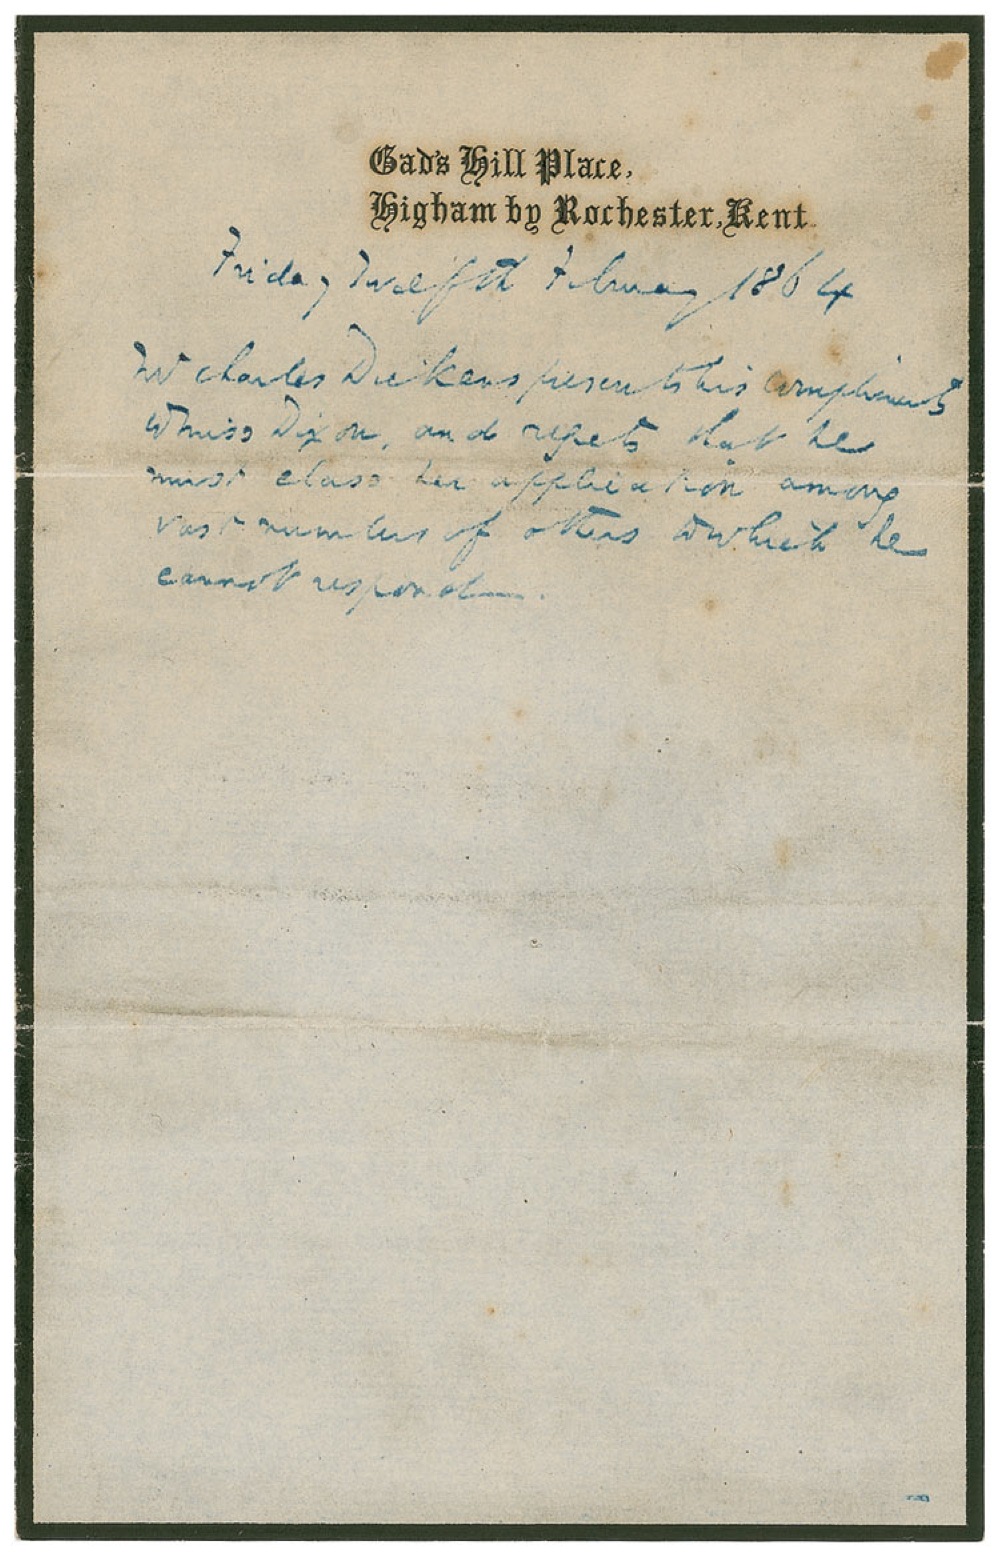 Gad's Hill Place,
Higham by Rochester, Kent.
Friday Twelfth February 1864
Mr Charles Dickens presents his compliments
to Miss Dixon, and regrets that he
must class her application among
vast numbers of others to which he
cannot respond.